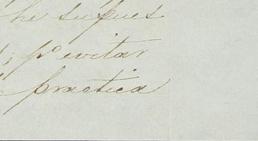 he supues
; pa evitar
practica